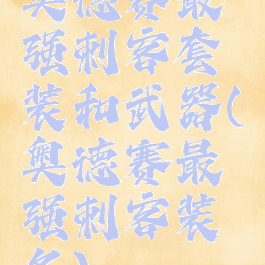 奥德赛最
强刺客套
装和武器(
奥德赛最
强刺客装
备)